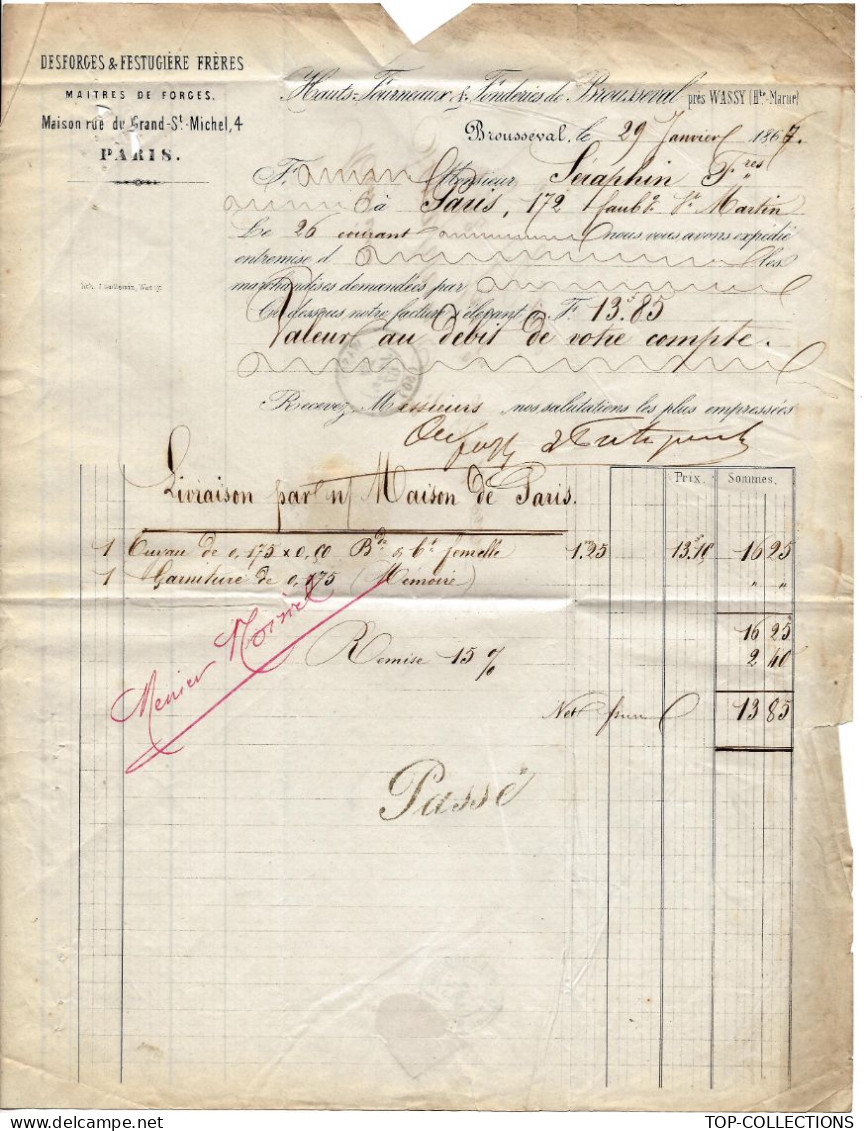 DESFORGES & FESTUGIÈRE FRÈRES
MAITRES DE FORGES.
Maison rue du Grand-St-Michel, 4
PARIS.
Hauts-Fourneaux & Fonderies de Brousseval près WASSY (Hte-Marne)
Brousseval, le 29 Janvier 1867.
Monsieur Séraphin Fres
à Paris, 172 faubg St Martin
Le 26 courant nous vous avons expédié
entremise d les
marchandises demandées par
Ci-dessous notre facture s'élevant F. 13.85
Valeur au débit de votre compte.
Recevez, Messieurs nos salutations les plus empressées
Prix. Sommes.
Livraison par n/ Maison de Paris.
1 Tuyau de 0,175 x 0,60 Bde & bt femelle 1.m25 13.f 16 25
1 Garniture de 0,175 (Mémoire) " "
16 25
Remise 15 % 2 40
Net 13 85
Menier
Passé
TOP-COLLECTIONS